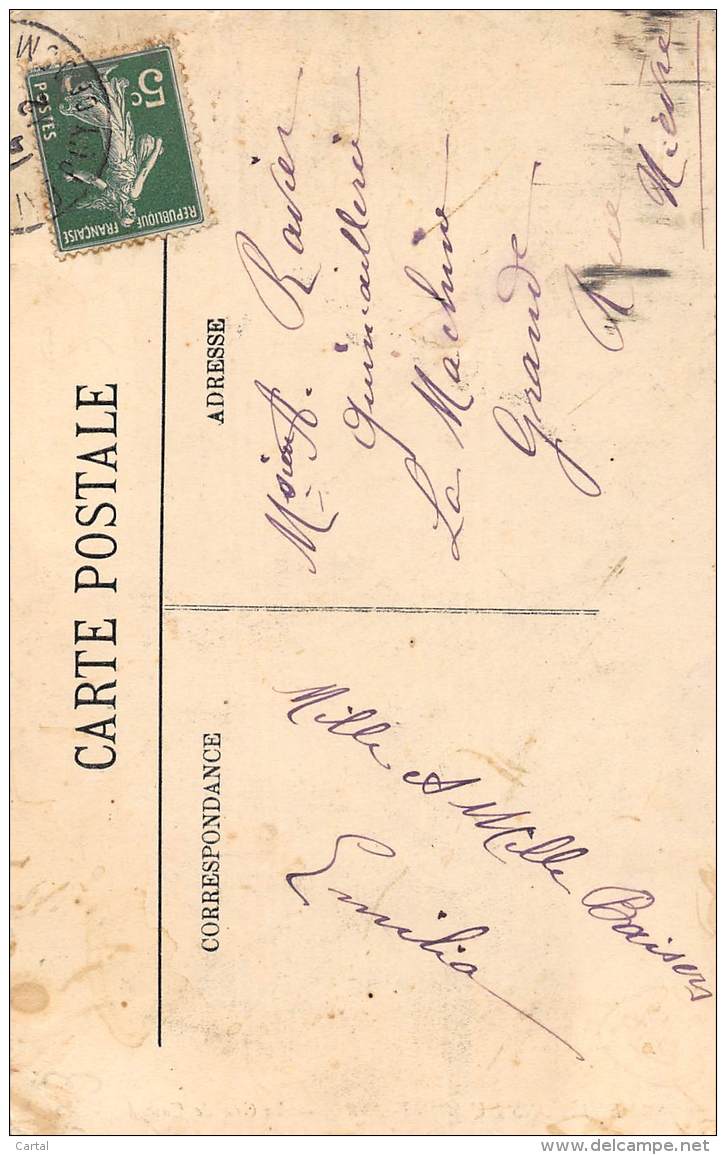 CARTE POSTALE
CORRESPONDANCE
ADRESSE
5c
POSTES
REPUBLIQUE FRANÇAISE
Mille & Mille Baisers
Emilia
Monsieur A. Ravier
Quincaillerie
La Machine
Grande Rue
Nièvre
Cartal
www.delcampe.net